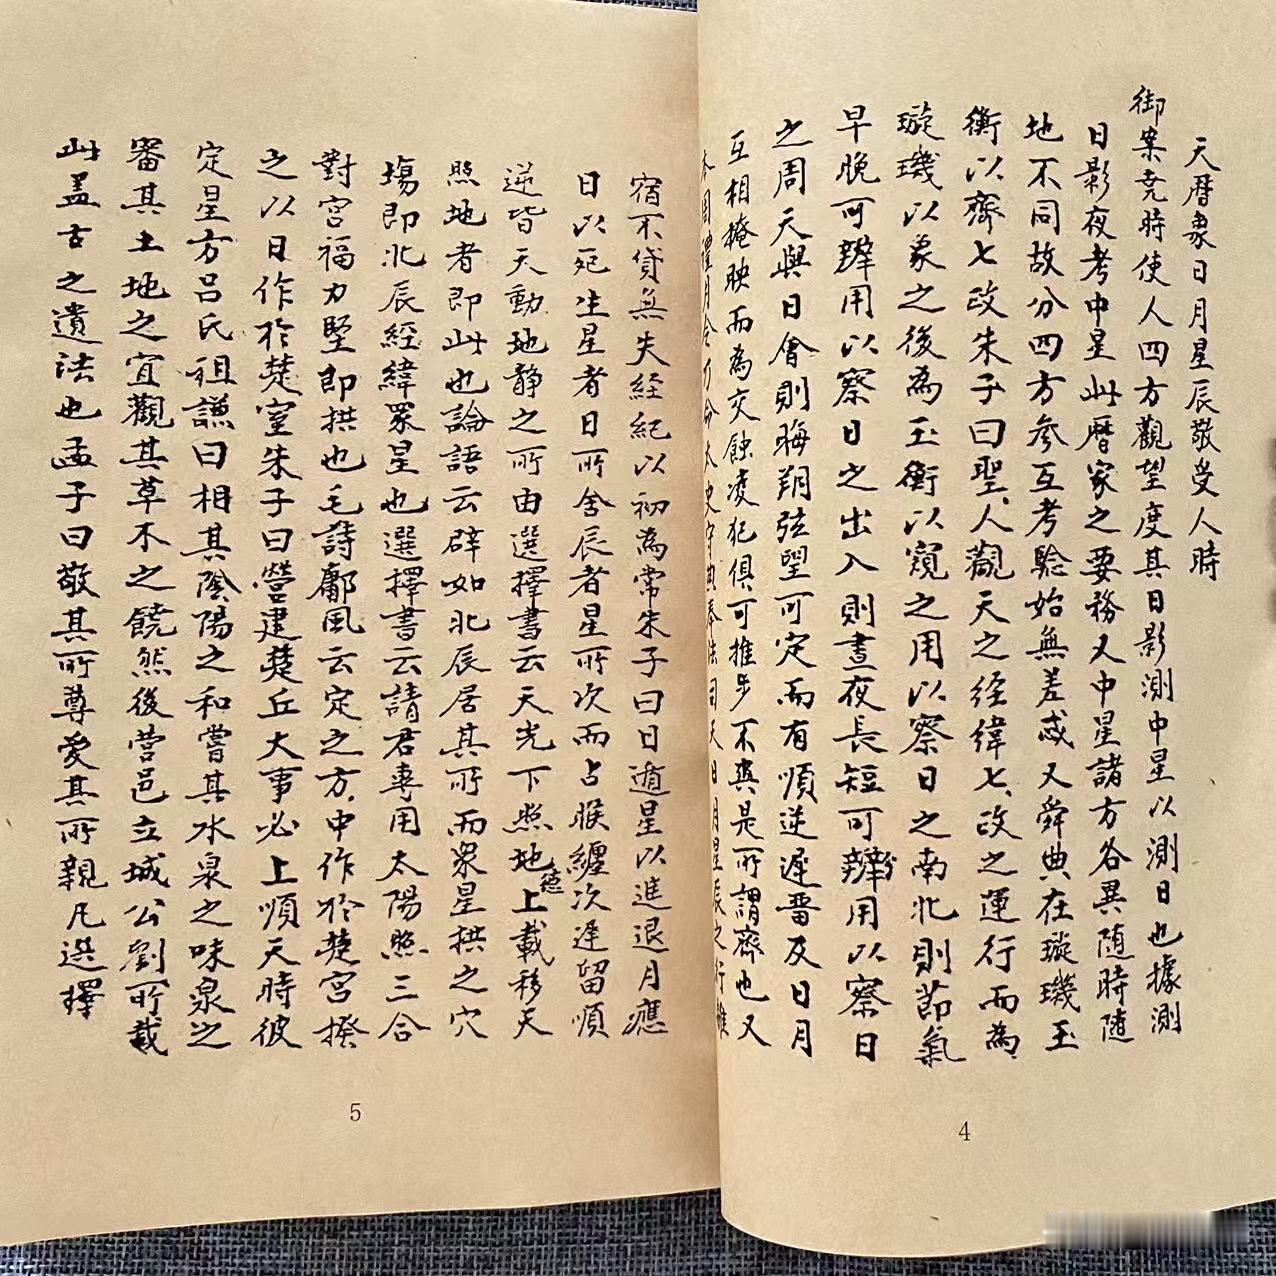 天曆象日月星辰敬受人時
御案堯時使人四方觀望度其日影測中星以測日也據測
日影夜考中星此曆家之要務又中星諸方各異隨時隨
地不同故分四方參互考驗始無差忒又舜典在璇璣玉
衡以齊七政朱子曰聖人觀天之經緯七政之運行而為
璇璣以象之後為玉衡以窺之用以察日之南北則節氣
早晚可辨用以察日之出入則晝夜長短可辨用以察日
之周天與日會則晦朔弦望可定而有順逆遲晋及日月
互相掩映而為交蝕凌犯俱可推步不爽是所謂齊也又
本周禮月令乃命太史守典奉法司天日月星辰之行離
宿不貸無失經紀以初為常朱子曰日遁星以進退月應
日以死生星者日所舍辰者星所次而占候纏次遲留順
逆皆天動地静之所由選擇書云天光下照地德上載移天
照地者即此也論語云辟如北辰居其所而衆星拱之穴
塲即北辰經緯眾星也選擇書云請君專用太陽照三合
對宮福力堅即拱也毛詩鄘風云定之方中作於楚宮揆
之以日作於楚室朱子曰營建楚丘大事必上順天時彼
定星方呂氏祖謙曰相其陰陽之和嘗其水泉之味泉之
審其土地之宜觀其草木之饒然後營邑立城公劉所載
此盖古之遺法也孟子曰敬其所尊愛其所親凡選擇
5
4